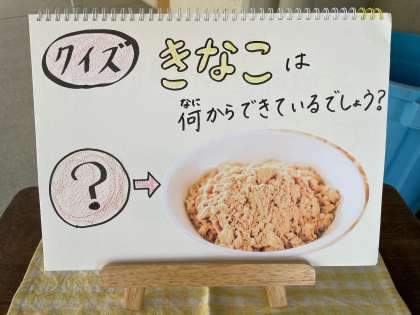 クイズ
きなこは
何からできているでしょう?
なに
?